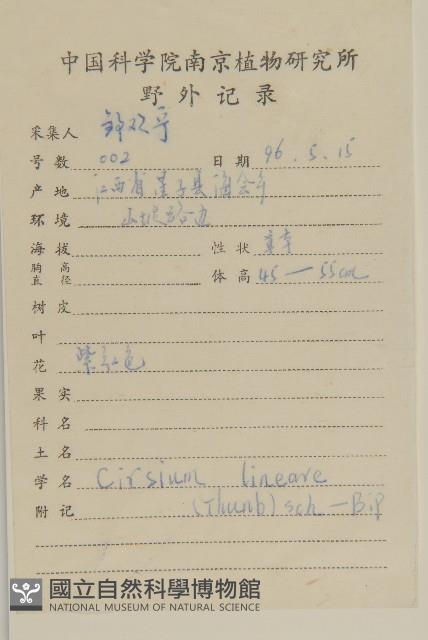 中国科学院南京植物研究所
野外记录
采集人
号数 002 日期 96.5.15
产地 江西省星子县海会乡
环境 山坡路边
海拔 性状 草本
胸高直径 体高 45—55cm
树皮
叶
花 紫红色
果实
科名
土名
学名 Cirsium lineare
附记 (Thunb) sch-Bip
國立自然科學博物館
NATIONAL MUSEUM OF NATURAL SCIENCE